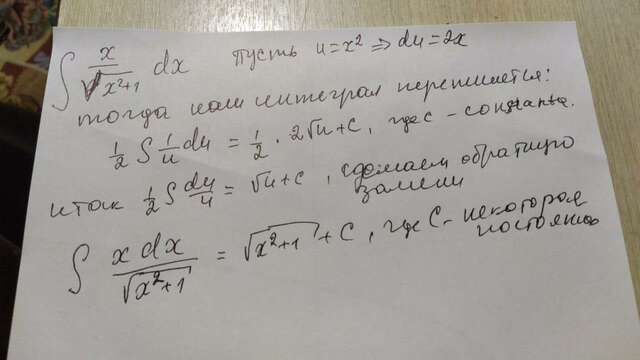 ∫ x/√(x²+1) dx пусть u = x² ⇒ du = 2x
тогда наш интеграл перепишется:
1/2 ∫ 1/u du = 1/2 · 2√u + C, где c – constanta.
итак 1/2 ∫ du/u = √u + C, сделаем обратную
замени
∫ x dx/√(x²+1) = √(x²+1) + C, где C – некоторая
постоянная